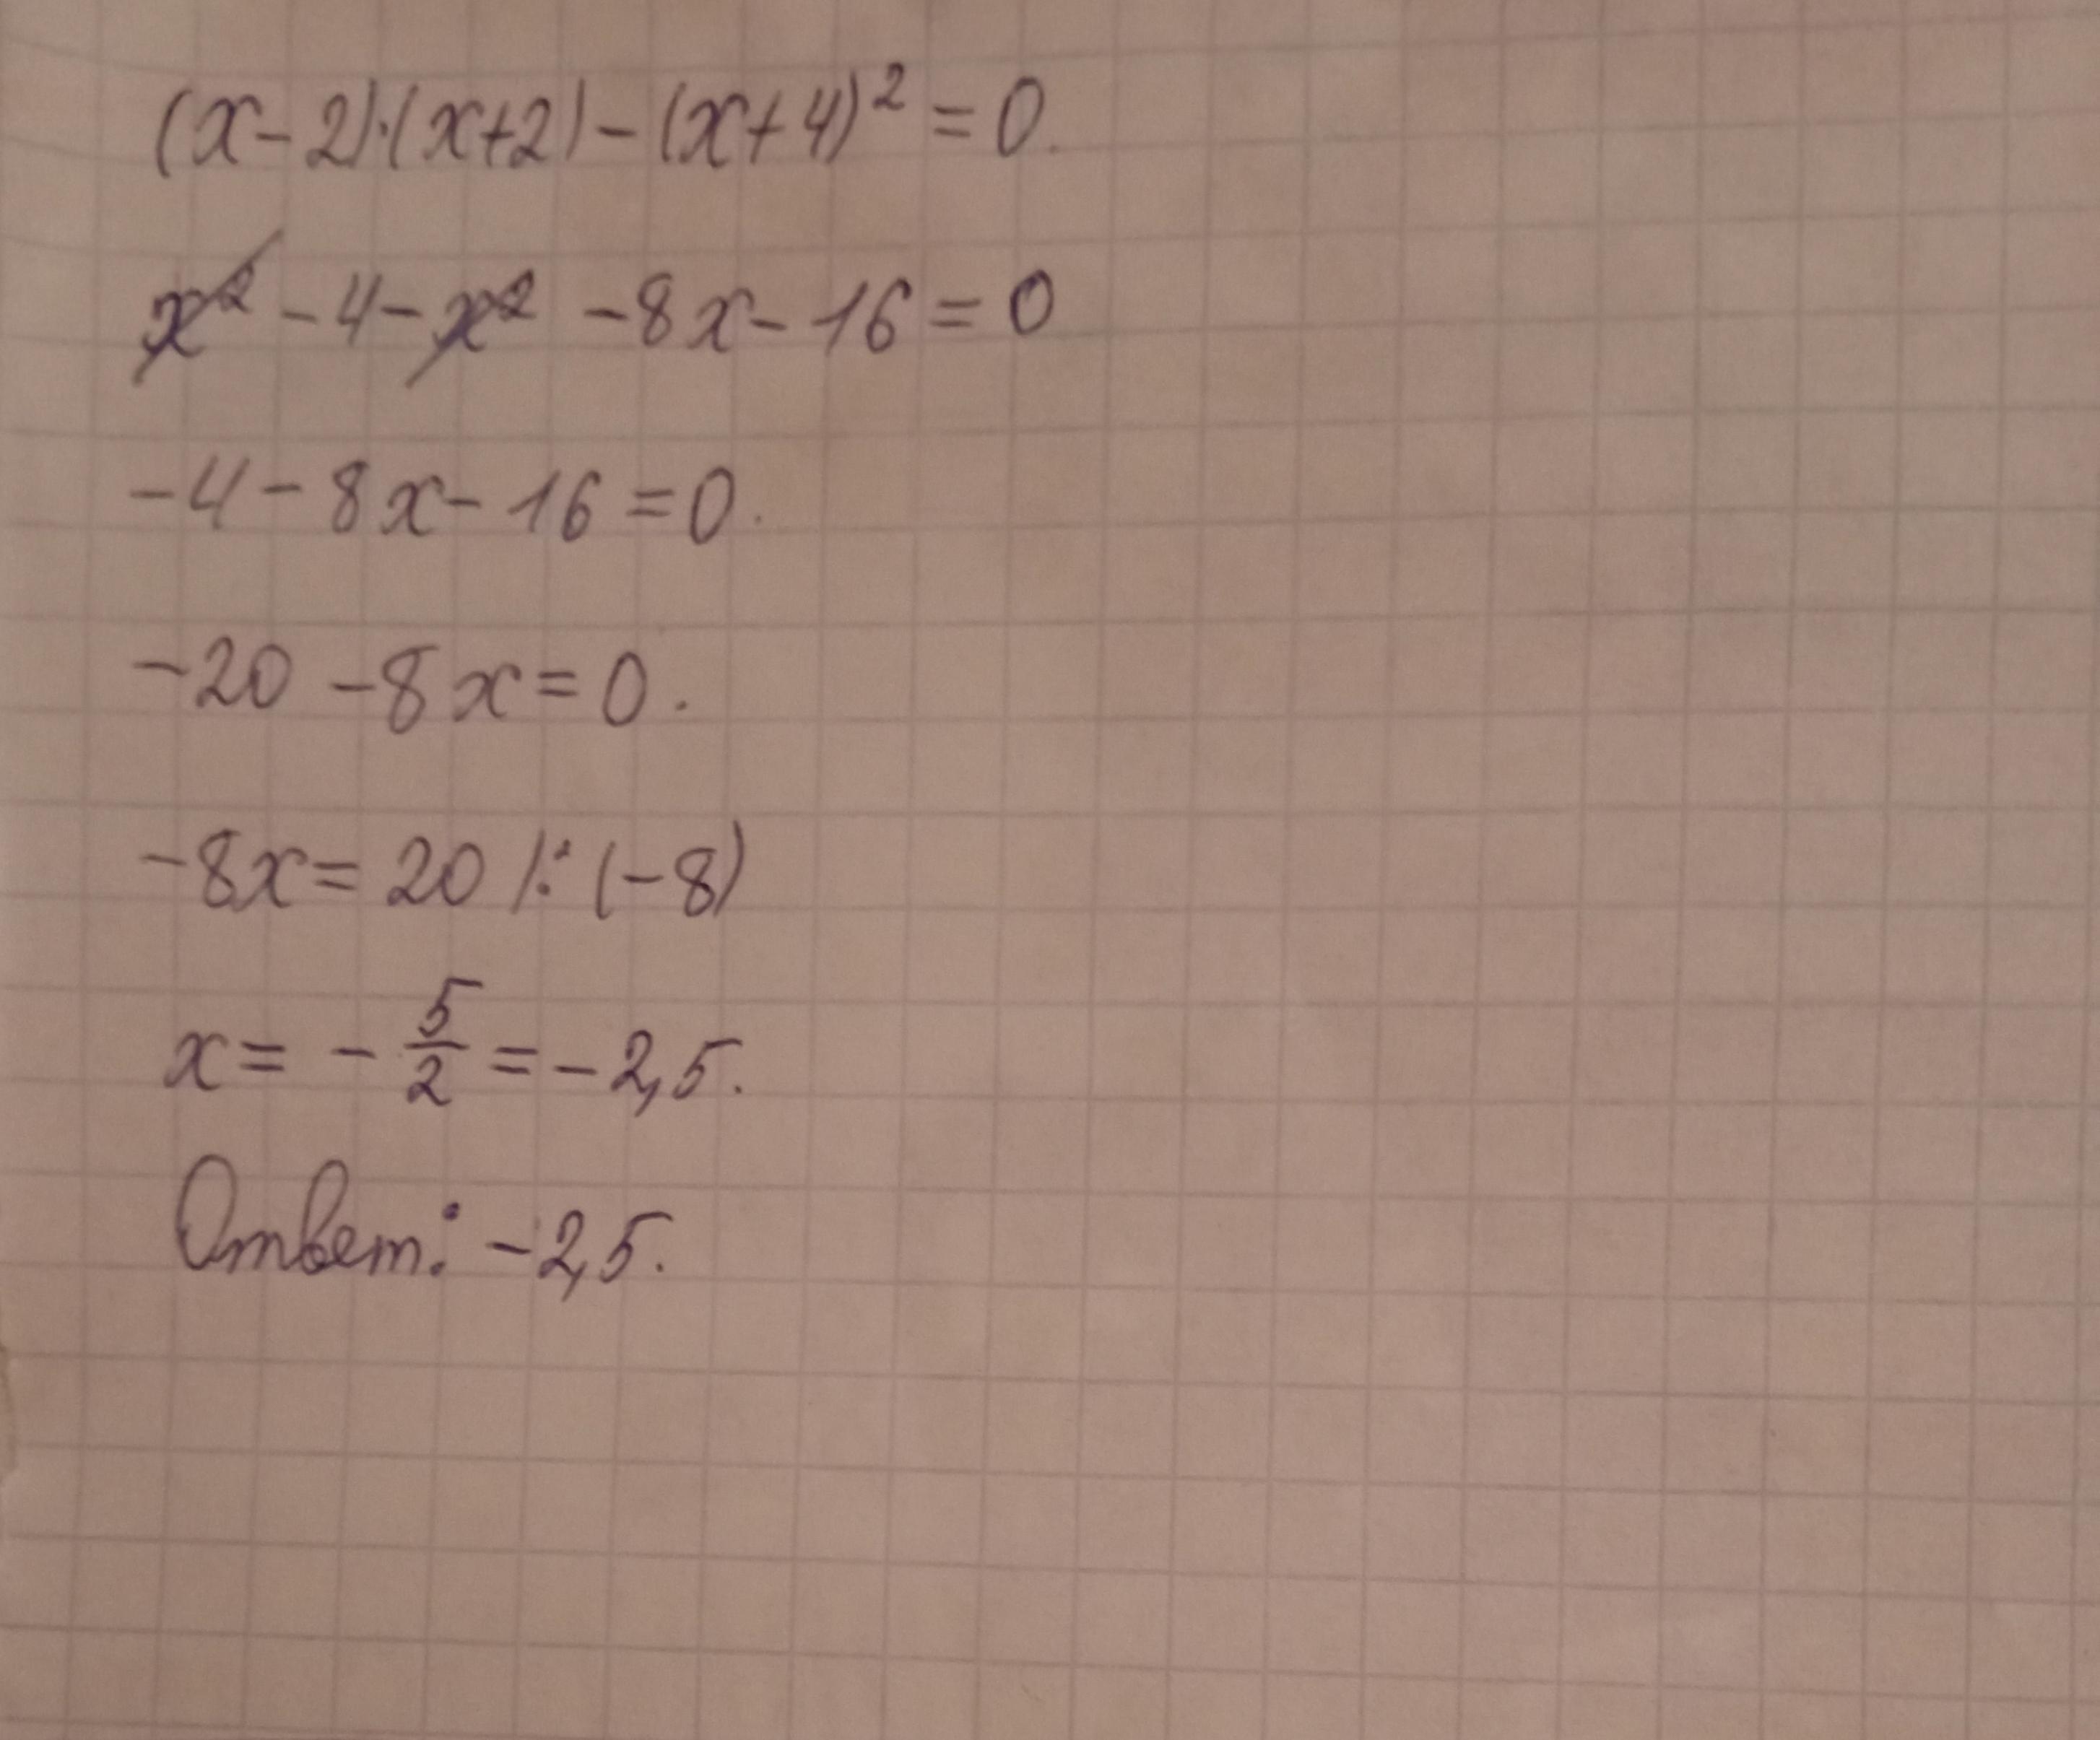 (x-2)·(x+2)-(x+4)² = 0.
x² - 4 - x² - 8x - 16 = 0
-4 - 8x - 16 = 0.
-20 - 8x = 0.
-8x = 20 |: (-8)
x = - 5/2 = -2,5.
Ответ: -2,5.